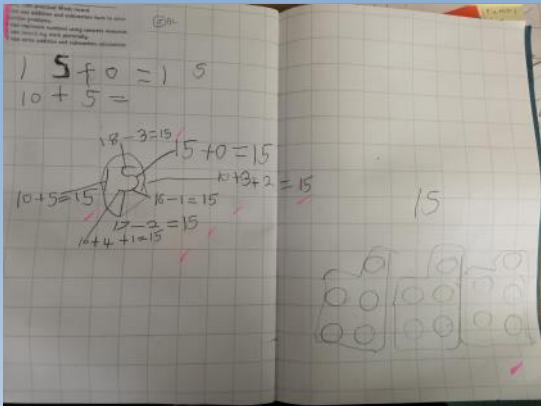 15+0=15
10+5=
18-3=15
15+0=15
10+3+2=15
10+5=15
16-1=15
17-2=15
10+4+1=15
15